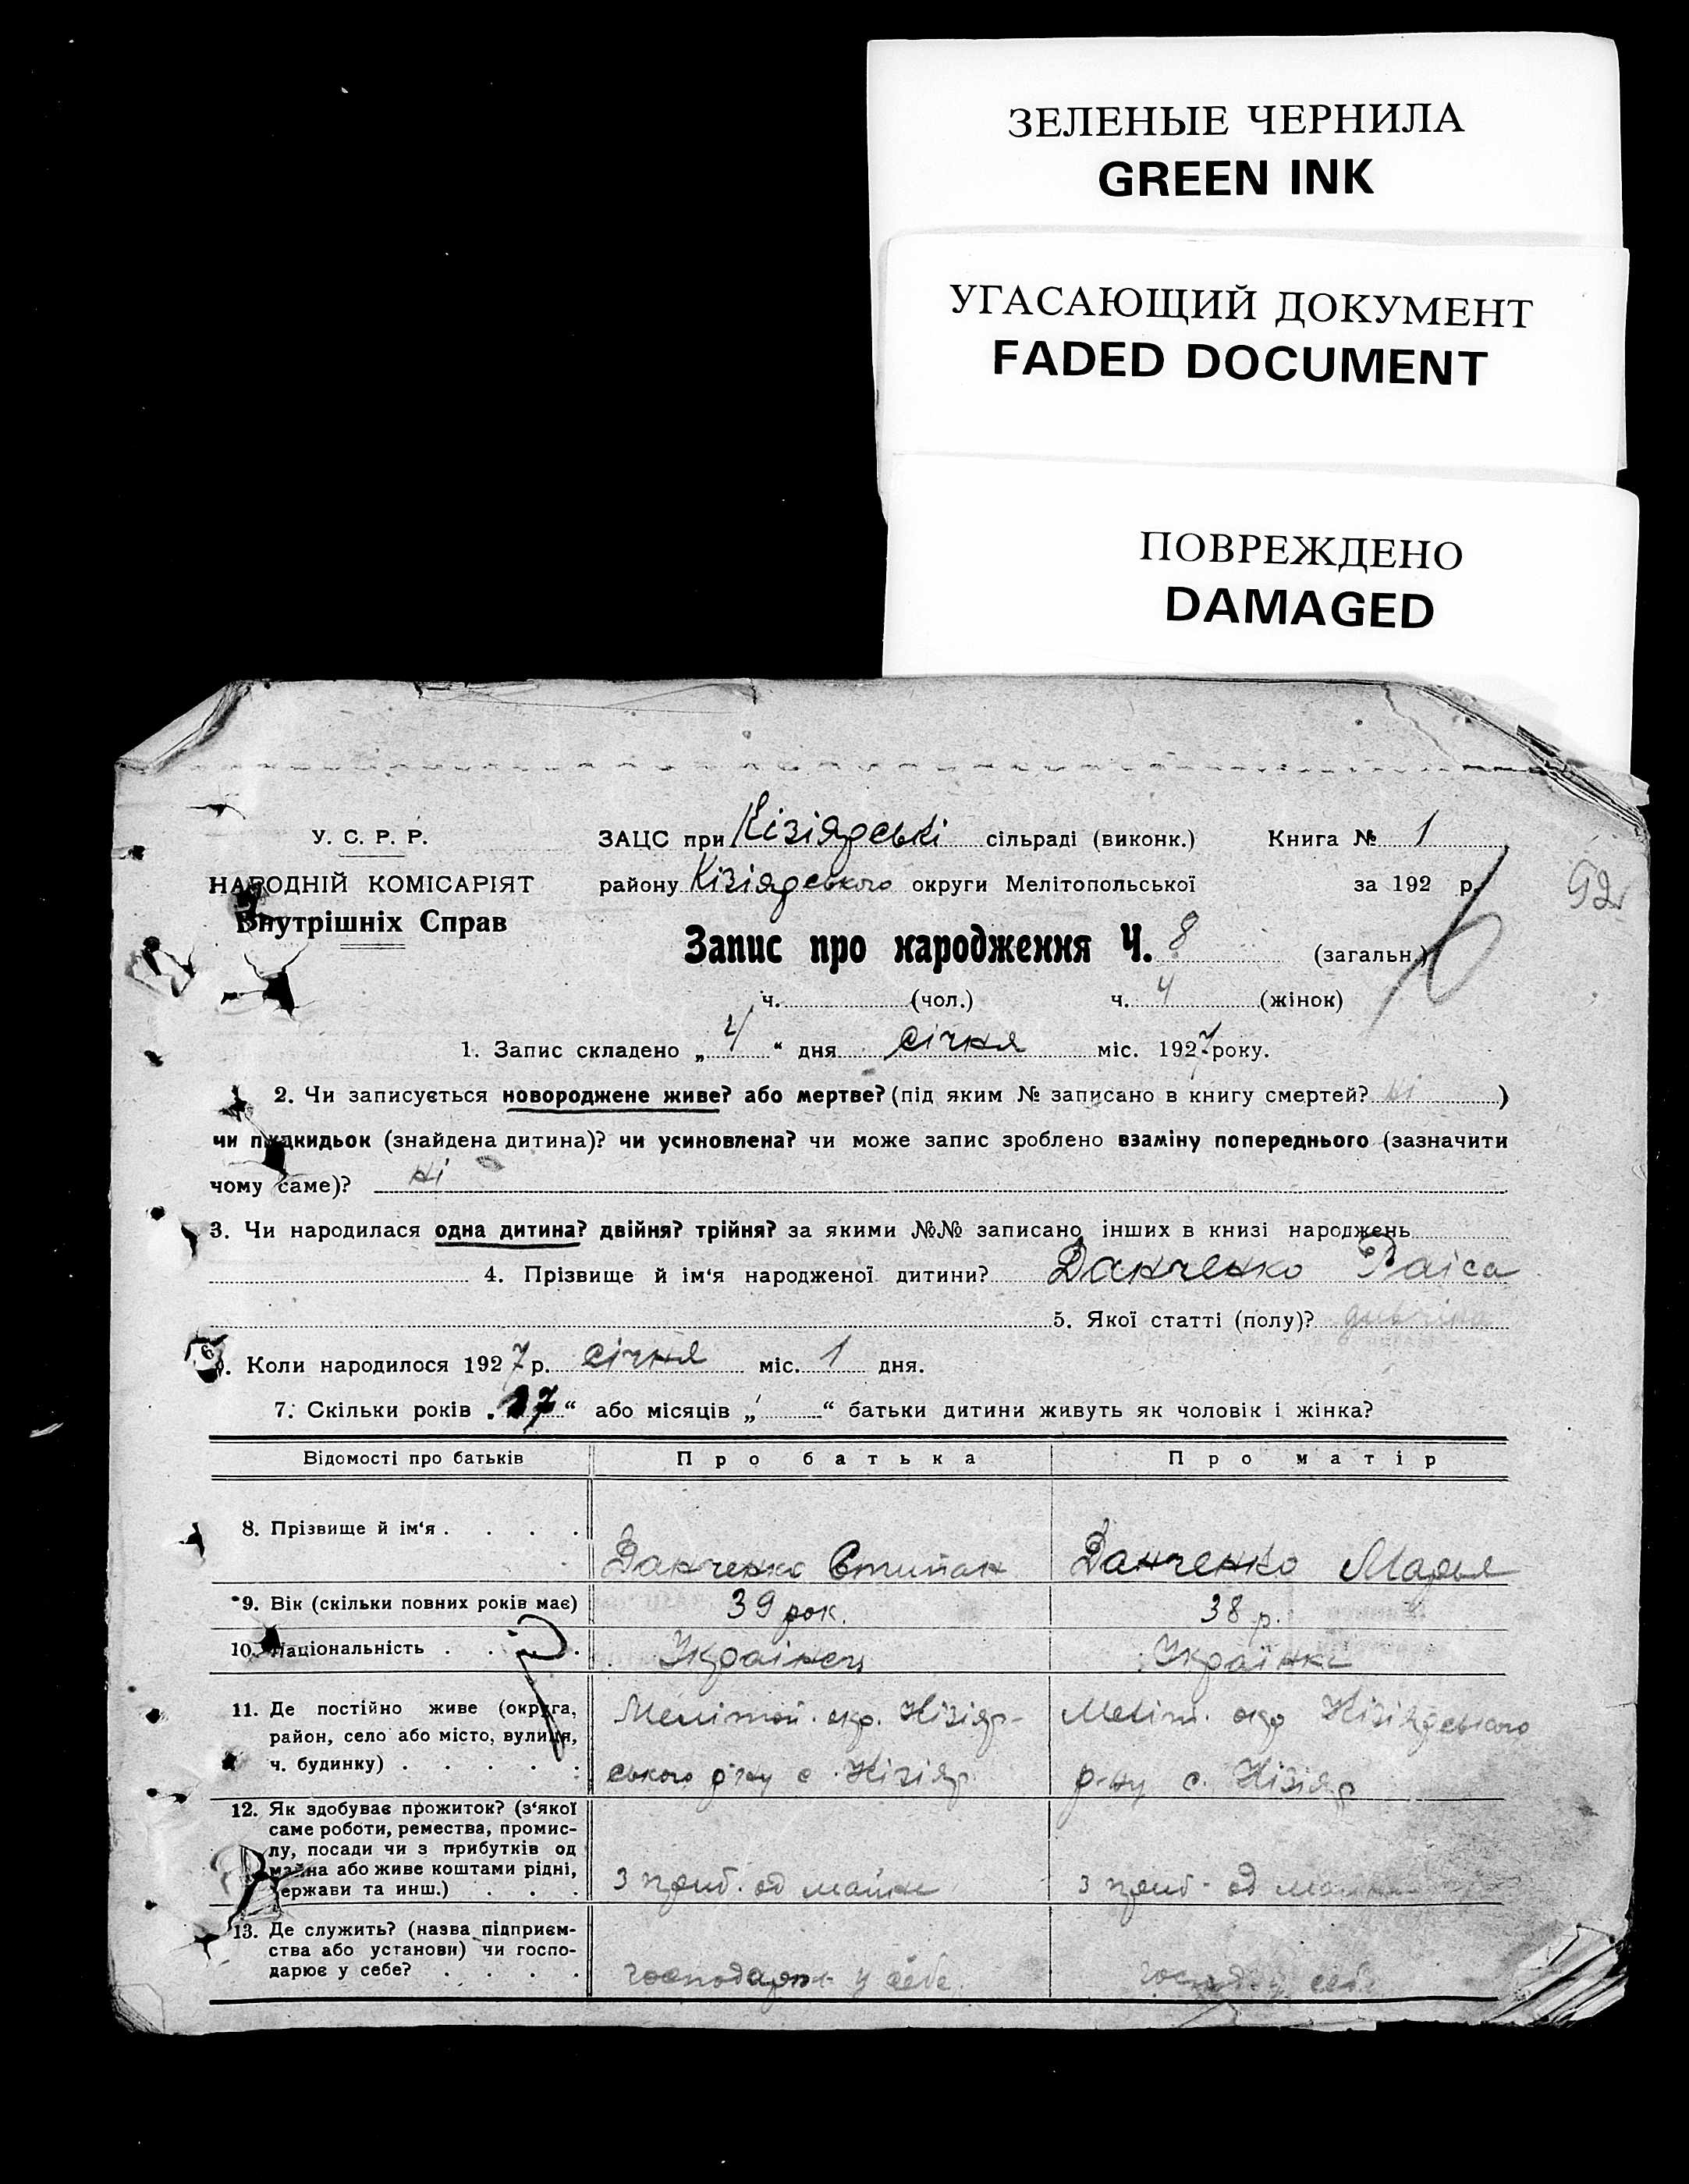 ЗЕЛЕНЫЕ ЧЕРНИЛА
GREEN INK
УГАСАЮЩИЙ ДОКУМЕНТ
FADED DOCUMENT
ПОВРЕЖДЕНО
DAMAGED
У. С. Р. Р. ЗАЦС при Кізіярські сільраді (виконк.) Книга № 1
НАРОДНІЙ КОМІСАРІЯТ району Кізіярського округи Мелітопольської за 192 р.
Внутрішніх Справ
Запис про народження Ч. 8 (загальн.)
ч. (чол.) ч. 4 (жінок)
1. Запис складено „4“ дня січня міс. 1927 року.
2. Чи записується новороджене живе? або мертве? (під яким № записано в книгу смертей? ні)
чи підкидьок (знайдена дитина)? чи усиновлена? чи може запис зроблено взаміну попереднього (зазначити
чому саме)? ні
3. Чи народилася одна дитина? двійня? трійня? за якими №№ записано інших в книзі народжень
4. Прізвище й ім‘я народженої дитини? Данченко Раіса
5. Якої статті (полу)?
6. Коли народилося 1927 р. січня міс. 1 дня.
7. Скільки років „17“ або місяців „ “ батьки дитини живуть як чоловік і жінка?
Відомості про батьків Про батька Про матір
8. Прізвище й ім‘я . . . . Данченко Стипан Данченко Марья
9. Вік (скільки повних років має) 39 рок. 38 р.
10. Національність . . . . Украінец Українка
11. Де постійно живе (округа, Меліtoп. окр. Кізіяр- Меліт. окр Кізіярського
район, село або місто, вулиця,
ч. будинку) . . . . . ського р-ну с. Кізіяр р-ну с. Кізіяр
12. Як здобуває прожиток? (з‘якої
саме роботи, ремества, промис-
лу, посади чи з прибутків од
майна або живе коштами рідні, з приб. од майна з приб. од майна
держави та инш.) . . .
13. Де служить? (назва підприєм-
ства або установи) чи госпо-
дарює у себе? . . . . у себе у себе